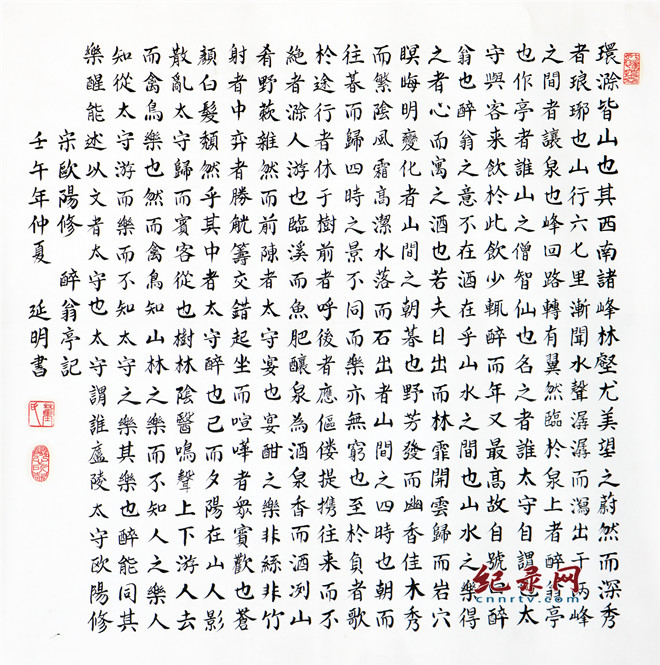 環滁皆山也其西南諸峰林壑尤美望之蔚然而深秀
者琅琊也山行六七里漸聞水聲潺潺而瀉出于两峰
之間者讓泉也峰回路轉有翼然臨於泉上者醉翁亭
也作亭者誰山之僧智仙也名之者誰太守自謂也太
守與客來飲於此飲少輒醉而年又最高故自號曰醉
翁也醉翁之意不在酒在乎山水之間也山水之樂得
之者心而寓之酒也若夫日出而林霏開雲歸而岩穴
暝晦明變化者山間之朝暮也野芳發而幽香佳木秀
而繁陰風霜高潔水落而石出者山間之四時也朝而
往暮而歸四時之景不同而樂亦無窮也至於負者歌
於途行者休于樹前者呼後者應傴僂提携往來而不
絶者滁人游也臨溪而魚肥釀泉為酒泉香而酒洌山
肴野蔌雜然而前陳者太守宴也宴酣之樂非絲非竹
射者中弈者勝觥籌交錯起坐而喧嘩者衆賓歡也蒼
顔白髮頹然乎其中者太守醉也已而夕陽在山人影
散亂太守歸而賓客從也樹林陰翳鳴聲上下游人去
而禽鳥樂也然而禽鳥知山林之樂而不知人之樂人
知從太守游而樂而不知太守之樂其樂也醉能同其
樂醒能述以文者太守也太守謂誰廬陵太守歐陽修
宋歐陽修 醉翁亭記
壬午年仲夏 延明書
纪录网
cnnrtv.com